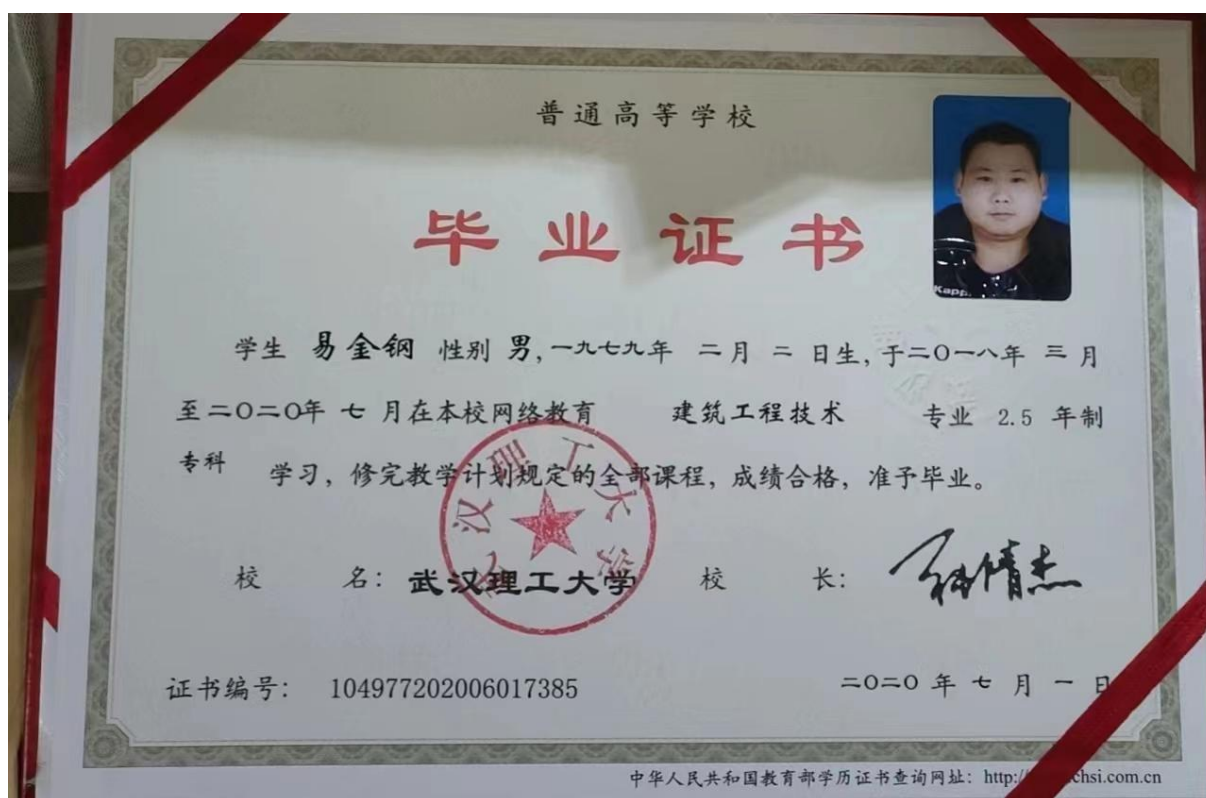 普通高等学校
毕业证书
Kapp
学生 易金钢 性别 男,一九七九年 二月 二 日生,于二〇一八年 三 月
至二〇二〇年 七 月在本校网络教育 建筑工程技术 专业 2.5 年制
专科 学习，修完教学计划规定的全部课程，成绩合格，准予毕业。
武汉理工大学
校 名：武汉理工大学 校 长：
证书编号： 104977202006017385 二〇二〇 年 七 月 一 日
中华人民共和国教育部学历证书查询网址：http:// chsi.com.cn